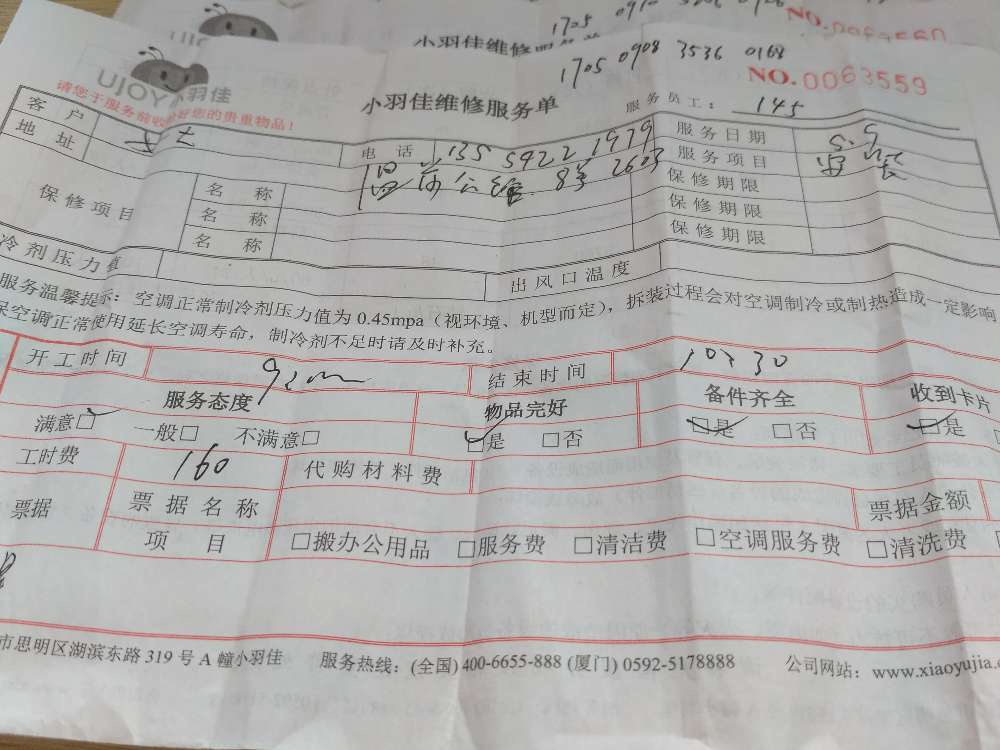 小羽佳维修服务单
1705 0908 3536 0168
NO.0063559
UJOY小羽佳
请您于服务前收 好您的贵重物品!
小羽佳维修服务单
服务员工: 145
客户 电话 135 5922 1979 服务日期 5.9
地址 8号 2603 服务项目
保修项目 名称 保修期限
名称 保修期限
名称 保修期限
冷剂压力值 出风口温度
服务温馨提示: 空调正常制冷剂压力值为 0.45mpa(视环境、机型而定), 拆装过程会对空调制冷或制热造成一定影响
保空调正常使用延长空调寿命, 制冷剂不足时请及时补充。
开工时间 结束时间 10:30
服务态度 物品完好 备件齐全 收到卡片
满意□ 一般□ 不满意□ □是 □否 □是 □否 □是
工时费 160 代购材料费
票据 票据名称 票据金额
项目 □搬办公用品 □服务费 □清洁费 □空调服务费 □清洗费
市思明区湖滨东路 319 号 A 幢小羽佳 服务热线: (全国) 400-6655-888 (厦门) 0592-5178888 公司网站: www.xiaoyujia.c